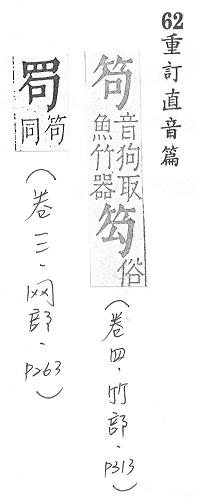 62重訂直音篇
笱音狗取魚竹器𥬉俗
（卷四．竹部．P313）
罟同笱
（卷一三．网部．P263）